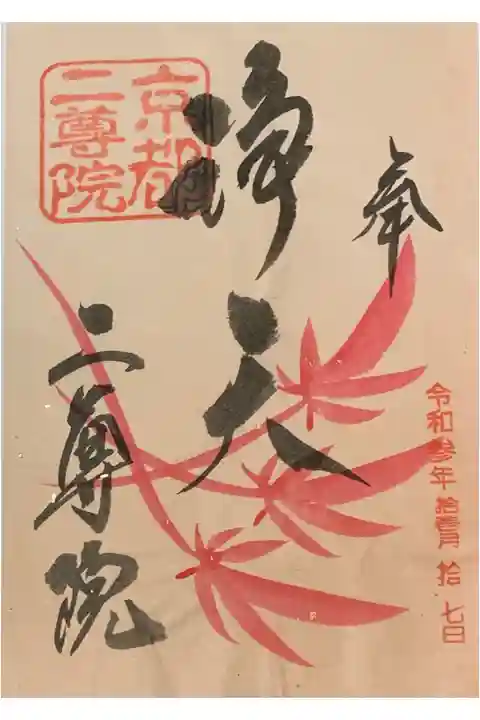 奉
令和参年 拾壹月 拾 七日
浄天
二尊院
京都
二尊院